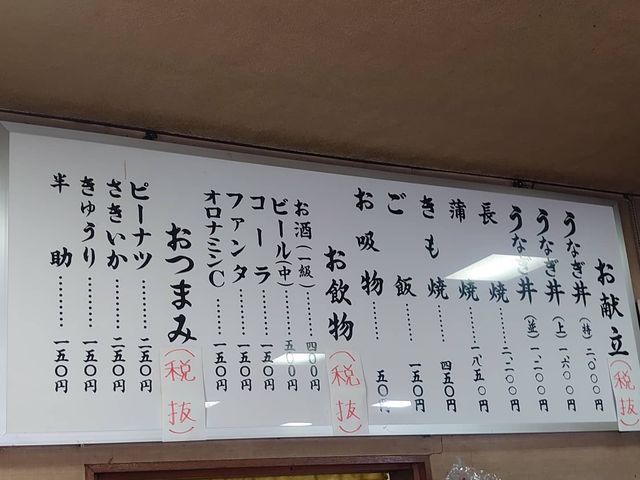 お献立
(税抜)
うなぎ丼(特)………二、〇〇〇円
うなぎ丼(上)………一、六〇〇円
うなぎ丼(並)………一、二〇〇円
長焼………二、二〇〇円
蒲焼………一、八五〇円
きも焼………四五〇円
ご飯………一五〇円
お吸物………五〇円
お飲物
(税抜)
お酒(一級)………四〇〇円
ビール(中)………五〇〇円
コーラ………一五〇円
ファンタ………一五〇円
オロナミンC………一五〇円
おつまみ
(税抜)
ピーナツ………二五〇円
さきいか………二五〇円
きゅうり………一五〇円
半助………一五〇円